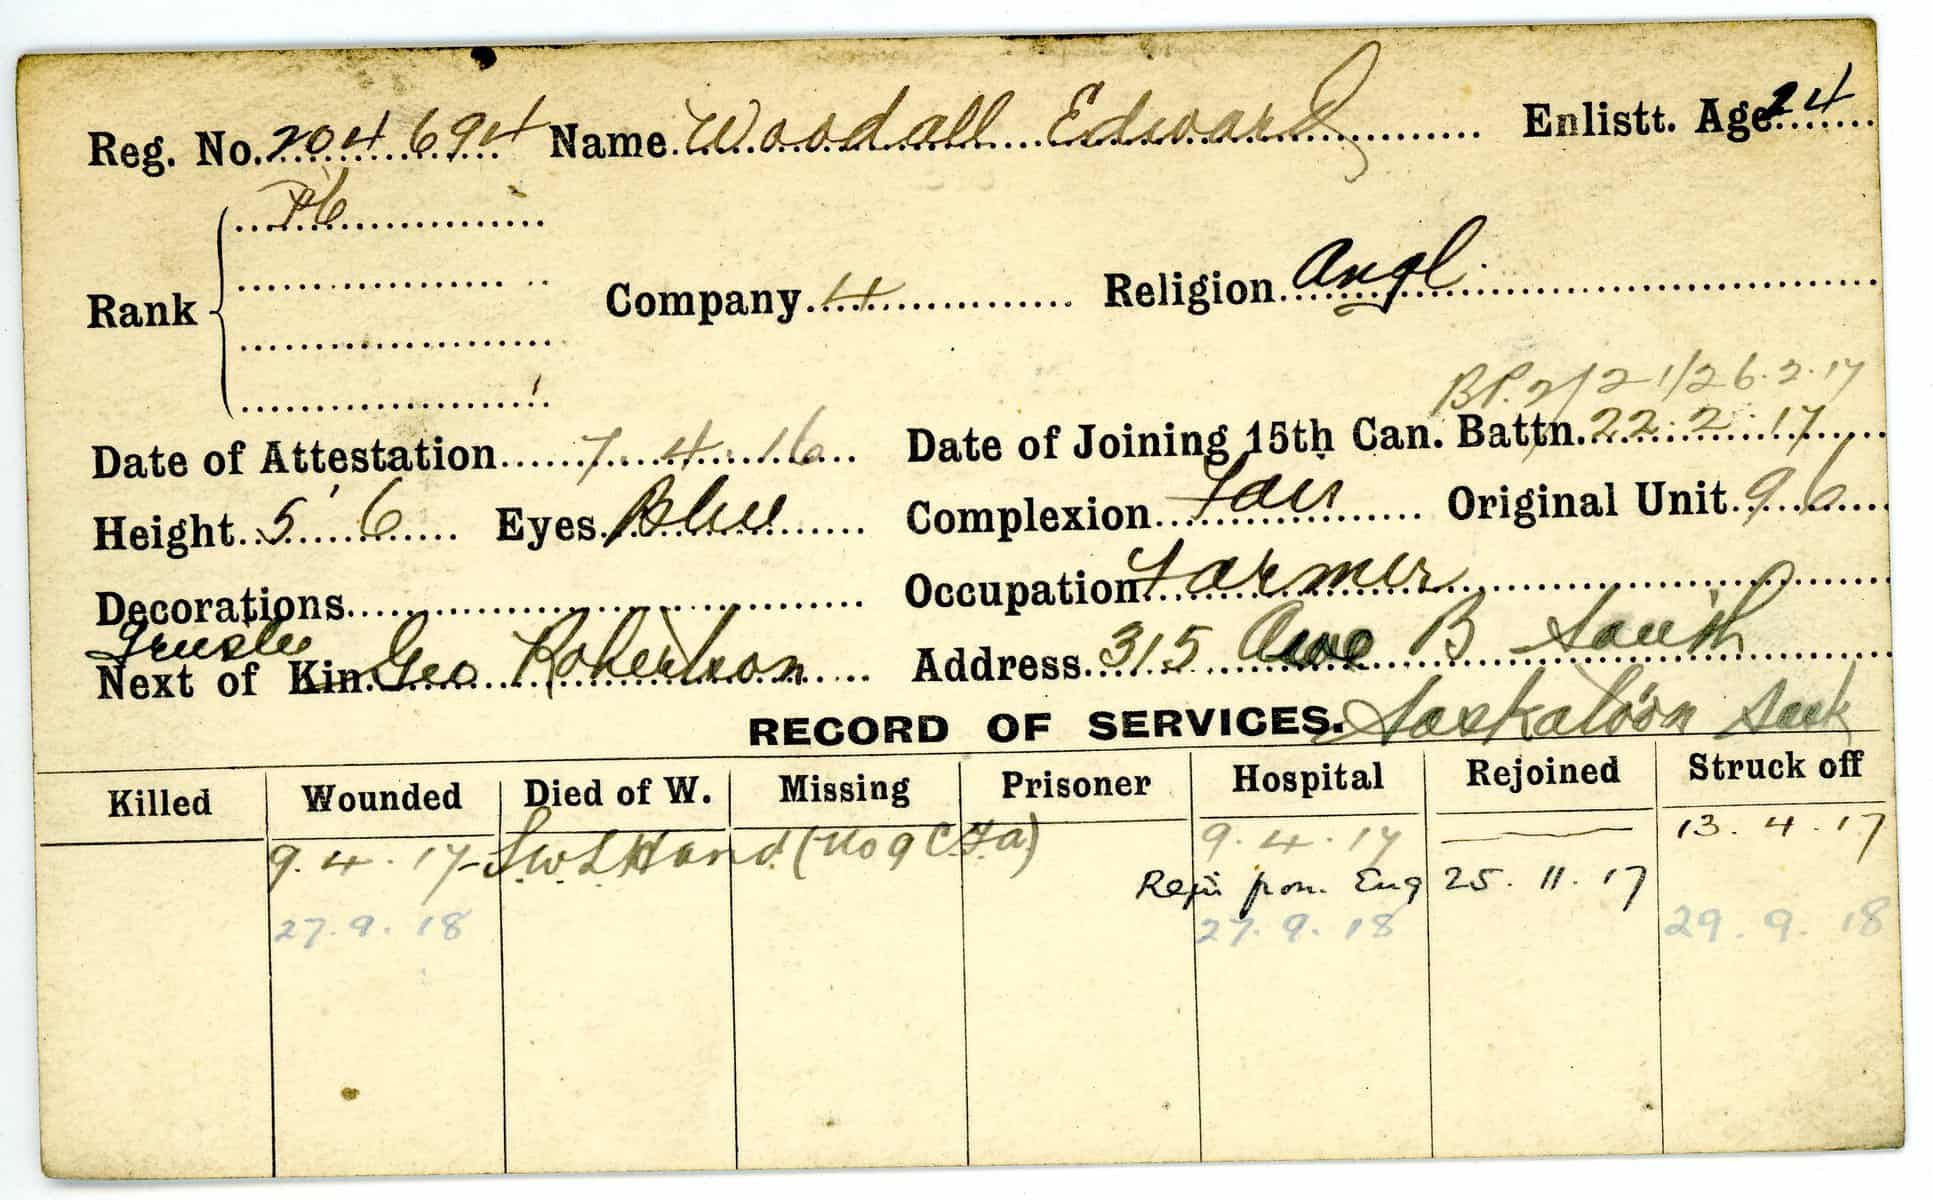 Reg. No. 204694 Name Woodall Edward Enlistt. Age 24
Pte
Rank Company 4 Religion Angl
B.P. 2/21/26.2.17
Date of Attestation 7.4.16 Date of Joining 15th Can. Battn. 22.2.17
Height 5' 6 Eyes Blue Complexion Fair Original Unit 96
Decorations Occupation Farmer
Trustee
Next of Kin Geo Robertson Address 315 Ave B South
RECORD OF SERVICES. Saskatoon Sask
Killed Wounded Died of W. Missing Prisoner Hospital Rejoined Struck off
9.4.17 - S.W.L Hand (No 9 C.F.A.) 9.4.17 — 13.4.17
from Eng 25.11.17
27.9.18 27.9.18 29.9.18